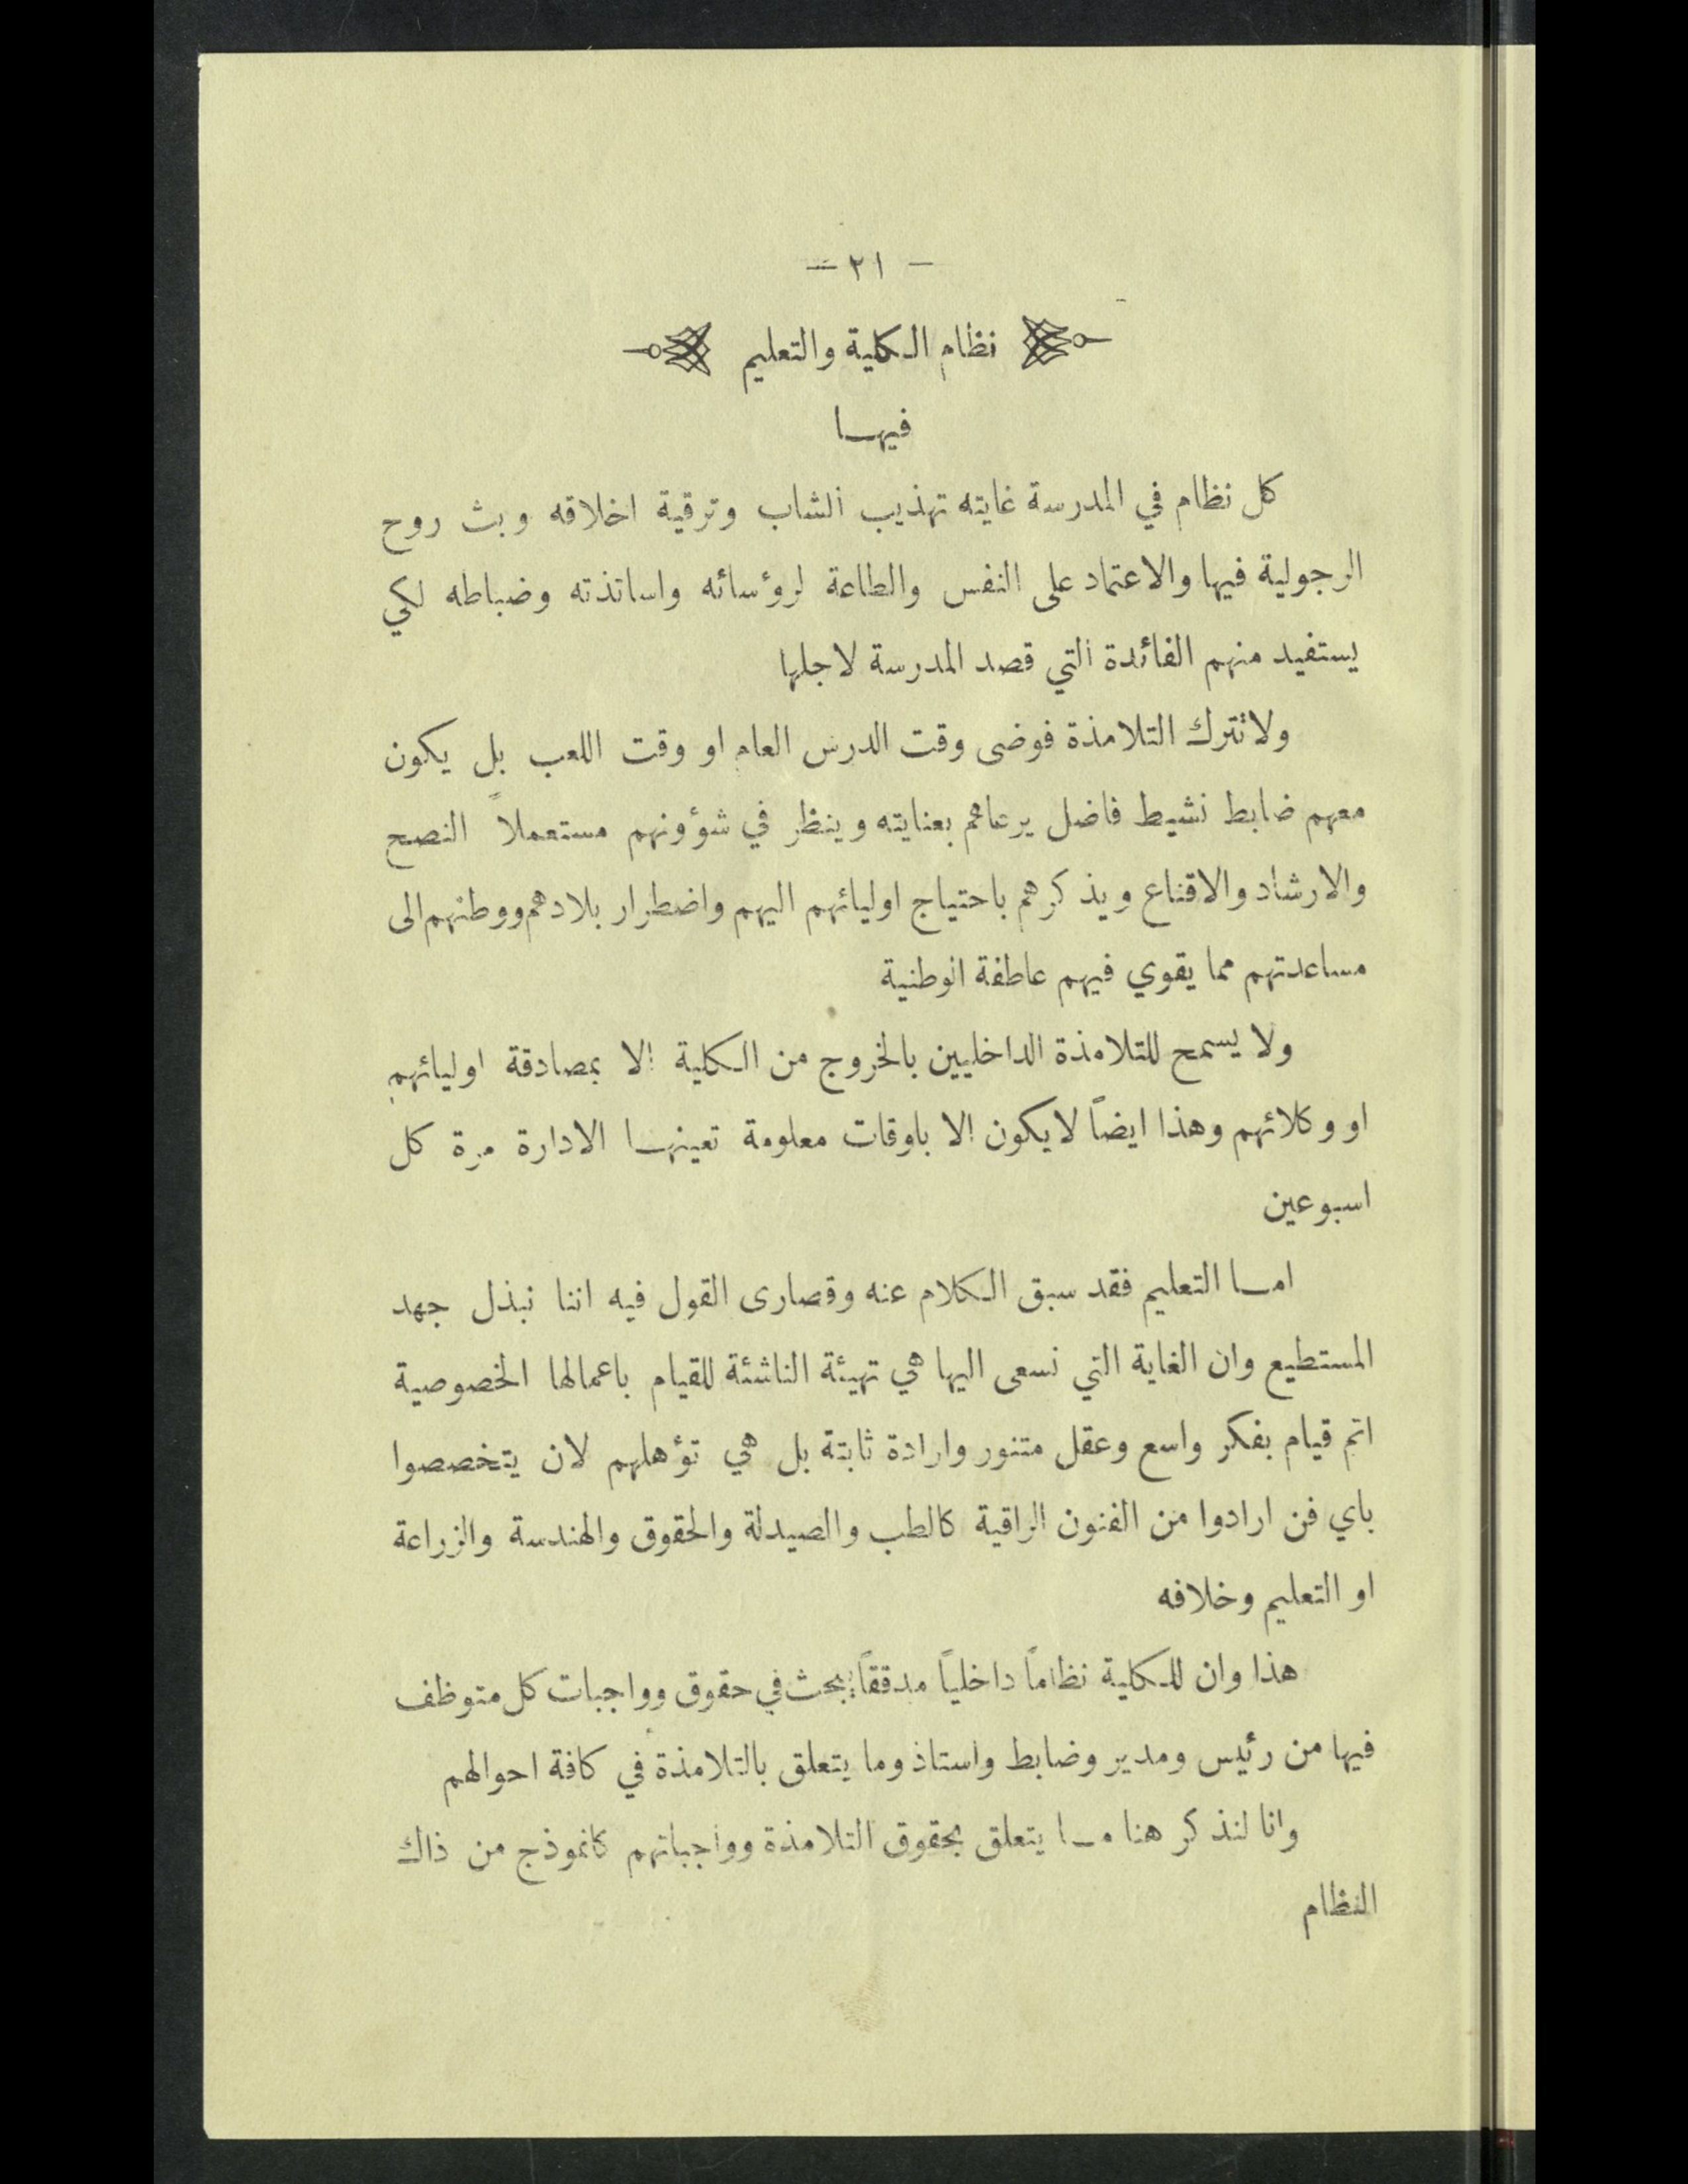 — ٢١ —
نظام الكلية والتعليم
فيها
كل نظام في المدرسة غايته تهذيب الشاب وترقية اخلاقه وبث روح
الرجولية فيها والاعتماد على النفس والطاعة لرؤسائه واساتذته وضباطه لكي
يستفيد منهم الفائدة التي قصد المدرسة لاجلها
ولا تترك التلامذة فوضى وقت الدرس العام او وقت اللعب بل يكون
معهم ضابط نشيط فاضل يرعاهم بعنايته وينظر في شؤونهم مستعملاً النصح
والارشاد والاقناع ويذكرهم باحتياج اوليائهم اليهم واضطرار بلادهم ووطنهم الى
مساعدتهم مما يقوي فيهم عاطفة الوطنية
ولا يسمح للتلامذة الداخليين بالخروج من الكلية الا بمصادقة اوليائهم
او وكلائهم وهذا ايضاً لا يكون الا باوقات معلومة تعينها الادارة مرة كل
اسبوعين
اما التعليم فقد سبق الكلام عنه وقصارى القول فيه اننا نبذل جهد
المستطيع وان الغاية التي نسعى اليها هي تهيئة الناشئة للقيام باعمالها الخصوصية
اتم قيام بفكر واسع وعقل متنور وارادة ثابتة بل هي تؤهلهم لان يتخصصوا
باي فن ارادوا من الفنون الراقية كالطب والصيدلة والحقوق والهندسة والزراعة
او التعليم وخلافه
هذا وان للكلية نظاماً داخلياً مدققاً يبحث في حقوق وواجبات كل متوظف
فيها من رئيس ومدير وضابط واستاذ وما يتعلق بالتلامذة في كافة احوالهم
وانا لنذكر هنا ما يتعلق بحقوق التلامذة وواجباتهم كانموذج من ذاك
النظام